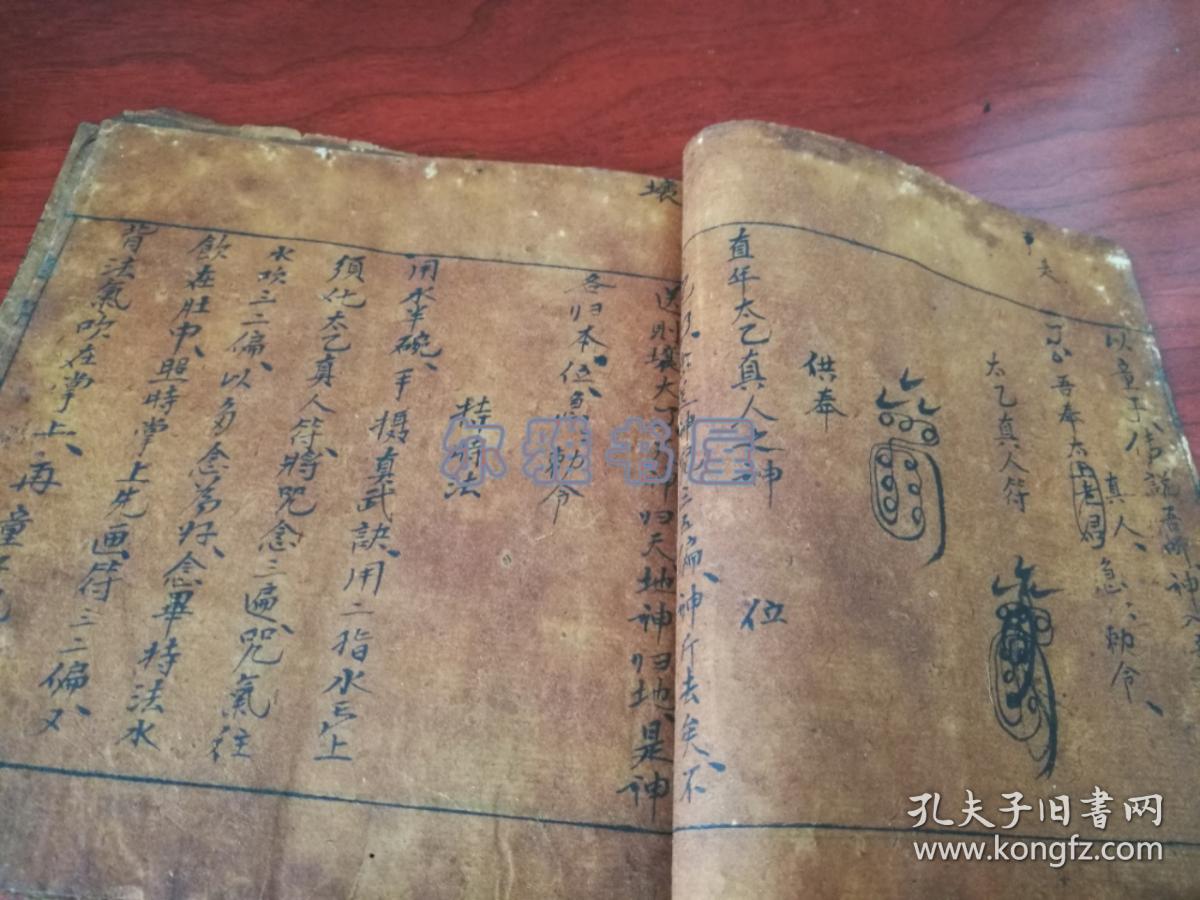 夫
以童子傳說吾
真人、急、勅令、
吾奉太上老君
太乙真人符
供奉
直年太乙真人之神 位
三五偏、神行去矣、不
壞
送則壞大 归天地神归地、是神
各归本位、急 勅令
持 法
用水半碗、手摄真武訣、用二指水上
須化太乙真人符、將咒念三遍、咒氣往
水吹三二偏、以多念為好、念畢持法水
飲在肚中、照時掌上先画符三二偏、又
背法氣吹在掌上、再 童
尔雅书屋
孔夫子旧书网
www.kongfz.com